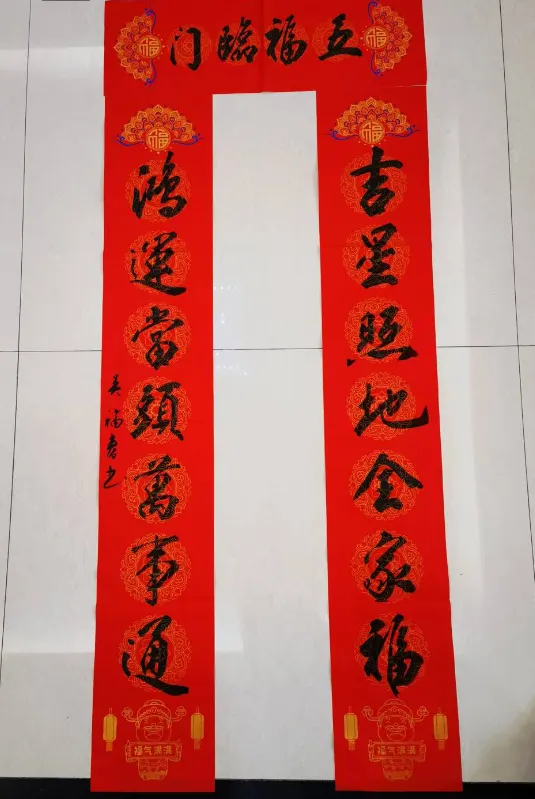 五福臨门
吉星照地全家福
鴻運當頭萬事通
吳福春书
福
福
福
福
福气满满
福气满满